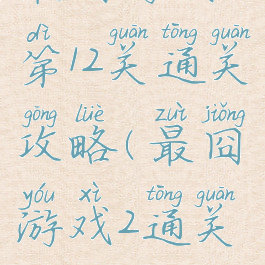 dì guān tōng guān
第12关通关
gōng lüè zuì jiǒng
攻略(最囧
yóu xì tōng guān
游戏2通关